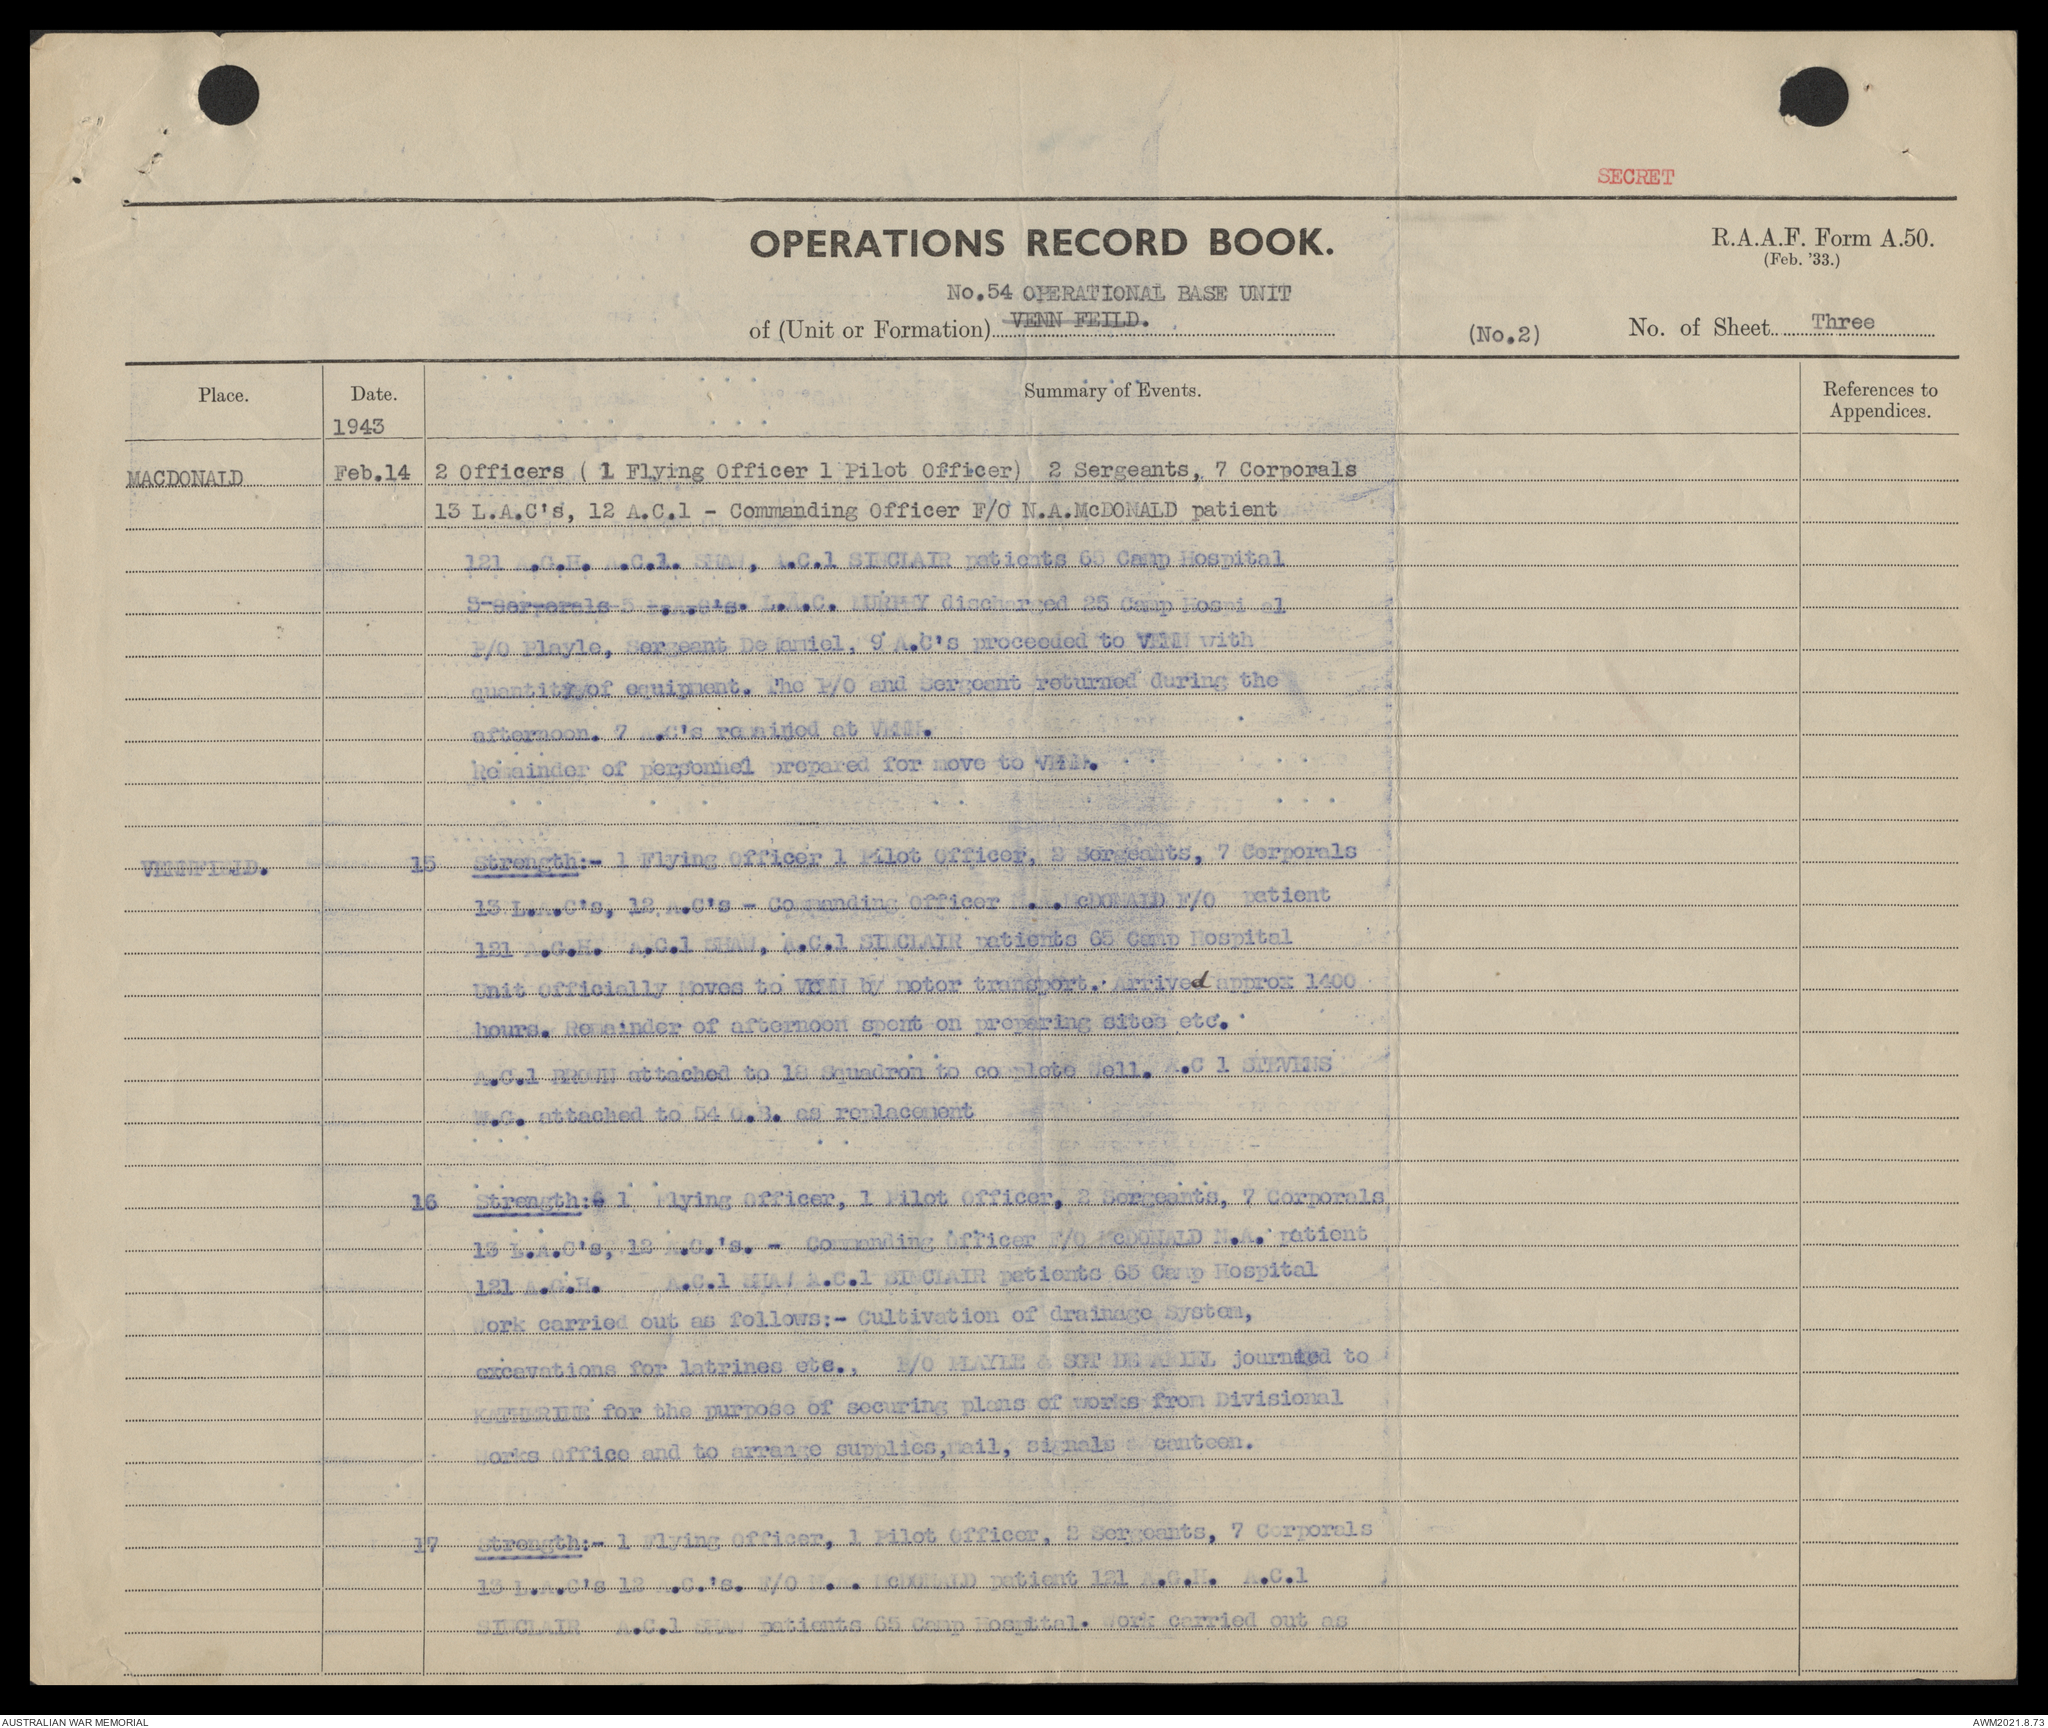 SECRET
OPERATIONS RECORD BOOK.
R.A.A.F. Form A.50.
(Feb. '33.)
No.54 OPERATIONAL BASE UNIT
of (Unit or Formation) VENN FEILD.
(No.2)
No. of Sheet Three
Place.
Date.
Summary of Events.
References to
Appendices.
1943
MACDONALD Feb.14 2 Officers ( 1 Flying Officer 1 Pilot Officer) 2 Sergeants, 7 Corporals
13 L.A.C's, 12 A.C.1 - Commanding Officer F/O N.A.McDONALD patient
121 A.G.H. A.C.1. SHAW, A.C.1 SINCLAIR patients 65 Camp Hospital
3 Corporals 5 L.A.C's. L.A.C. MURPHY discharged 25 Camp Hospital
P/O Playle, Sergeant DeDaniel, 9 A.C's proceeded to VENN with
quantity of equipment. The P/O and Sergeant returned during the
afternoon. 7 A.C's remained at VENN.
Remainder of personnel prepared for move to VENN.
VENNFIELD. 15 Strength:- 1 Flying Officer 1 Pilot Officer, 2 Sergeants, 7 Corporals
13 L.A.C's, 12 A.C's - Commanding Officer N.A.McDONALD F/O patient
121 A.G.H. A.C.1 SHAW, A.C.1 SINCLAIR patients 65 Camp Hospital
Unit Officially Moves to VENN by motor transport. Arrived approx 1400
hours. Remainder of afternoon spent on preparing sites etc.
A.C.1 BROWN attached to 18 Squadron to complete Well. A.C 1 STEVENS
W.G. attached to 54 O.B. as replacement
16 Strength: 1 Flying Officer, 1 Pilot Officer, 2 Sergeants, 7 Corporals
13 L.A.C's, 12 A.C.'s. - Commanding Officer F/O McDONALD N.A. patient
121 A.G.H. A.C.1 SHAW A.C.1 SINCLAIR patients 65 Camp Hospital
Work carried out as follows:- Cultivation of drainage System,
excavations for latrines etc., P/O PLAYLE & SGT DE DANIEL journied to
KATHERINE for the purpose of securing plans of works from Divisional
Works Office and to arrange supplies,mail, signals & canteen.
17 Strength:- 1 Flying Officer, 1 Pilot Officer, 2 Sergeants, 7 Corporals
13 L.A.C's 12 A.C.'s. F/O N.A. McDONALD patient 121 A.G.H. A.C.1
SINCLAIR A.C.1 SHAW patients 65 Camp Hospital. Work carried out as
AUSTRALIAN WAR MEMORIAL
AWM2021.8.73